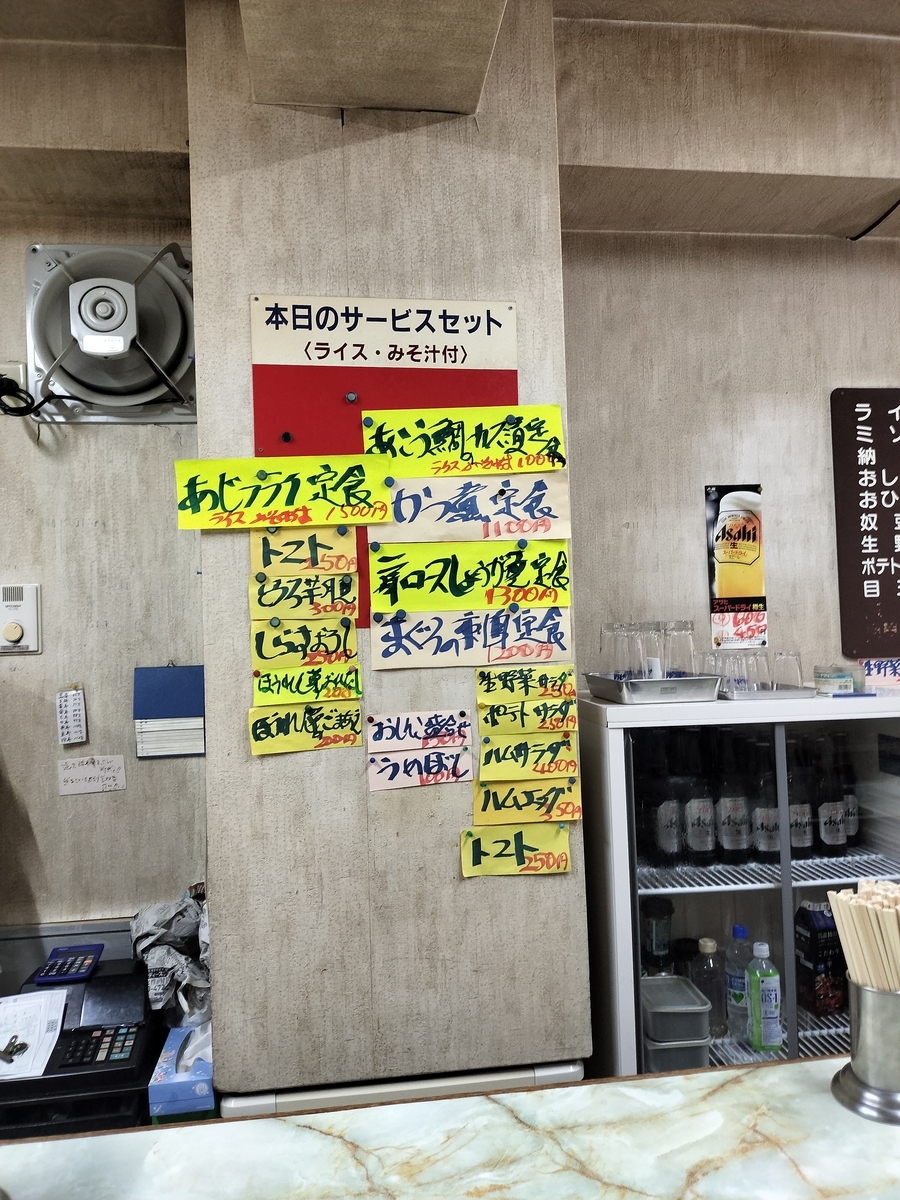 本日のサービスセット
〈ライス・みそ汁付〉
あこう鯛カブ煮定食
ライスみそ汁付 1100円
あじフライ定食
ライス みそ汁付 1500円
かつ煮定食
1100円
肩ロースしょうが焼定食
1300円
まぐろ刺身定食
1200円
トマト
250円
とろろ芋
300円
しらすおろし
250円
ほうれん草おひたし
200円
ほうれん草ごまあえ
200円
おしんこ盛合せ
150円
うめぼし
100円
生野菜サラダ
250円
ポテトサラダ
250円
ハムサラダ
400円
ハムエッグ
350円
トマト
250円
Asahi
生
アサヒ
スーパードライ 樽生
ラ イ
ミ ソ
納
お し
お ひ
奴
生 野
ポテト
目 玉
生野菜
Asahi